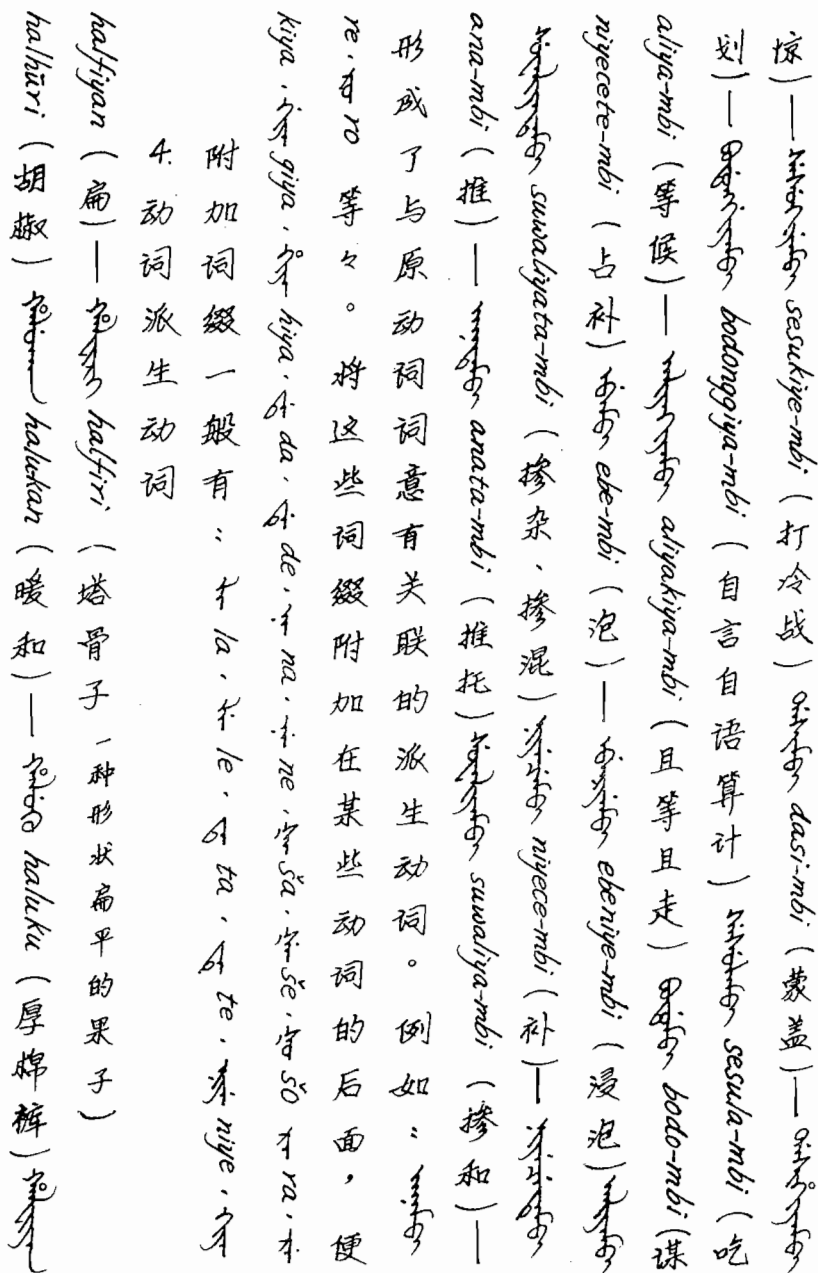 halhūri（胡椒）ᡥᠠᠯᡠᡴᠠᠨ halukan（暖和）— ᡥᠠᠯᡠᡴᡠ haluku（厚棉裤）ᡥᠠᠯᡶᡳᠶᠠᠨ
halfiyan（扁）— ᡥᠠᠯᡶᡳᡵᡳ halfiri（塔骨子 一种形状扁平的果子）
4. 动词派生动词
附加词缀一般有：ᠯᠠ la、ᠯᡝ le、ᡨᠠ ta、ᡨᡝ te、ᠨᡳᠶᡝ niye、ᡴᡳᠶᠠ
kiya、ᡤᡳᠶᠠ giya、ᡥᡳᠶᠠ hiya、ᡩᠠ da、ᡩᡝ de、ᠨᠠ na、ᠨᡝ ne、ᡧᠠ ša、ᡧᡝ še、ᡧᠣ šo ᡵᠠ ra、ᡵᡝ
re、ᡵᠣ ro 等々。将这些词缀附加在某些动词的后面，便
形成了与原动词词意有关联的派生动词。例如：ᠠᠨᠠᠮᠪᡳ
ana-mbi（推）— ᠠᠨᠠᡨᠠᠮᠪᡳ anata-mbi（推托）ᠰᡠᠸᠠᠯᡳᠶᠠᠮᠪᡳ suwaliya-mbi（掺和）—
ᠰᡠᠸᠠᠯᡳᠶᠠᡨᠠᠮᠪᡳ suwaliyata-mbi（掺杂、掺混）ᠨᡳᠶᡝᠴᡝᠮᠪᡳ niyece-mbi（补）— ᠨᡳᠶᡝᠴᡝᡨᡝᠮᠪᡳ
niyecete-mbi（占补）ᡝᠪᡝᠮᠪᡳ ebe-mbi（泡）— ᡝᠪᡝᠨᡳᠶᡝᠮᠪᡳ ebeniye-mbi（浸泡）ᠠᠯᡳᠶᠠᠮᠪᡳ
aliya-mbi（等候）— ᠠᠯᡳᠶᠠᡴᡳᠶᠠᠮᠪᡳ aliyakiya-mbi（且等且走）ᠪᠣᡩᠣᠮᠪᡳ bodo-mbi（谋
划）— ᠪᠣᡩᠣᠩᡤᡳᠶᠠᠮᠪᡳ bodonggiya-mbi（自言自语算计）ᠰᡝᠰᡠᠯᠠᠮᠪᡳ sesula-mbi（吃
惊）— ᠰᡝᠰᡠᡴᡳᠶᡝᠮᠪᡳ sesukiye-mbi（打冷战）ᡩᠠᠰᡳᠮᠪᡳ dasi-mbi（蒙盖）—